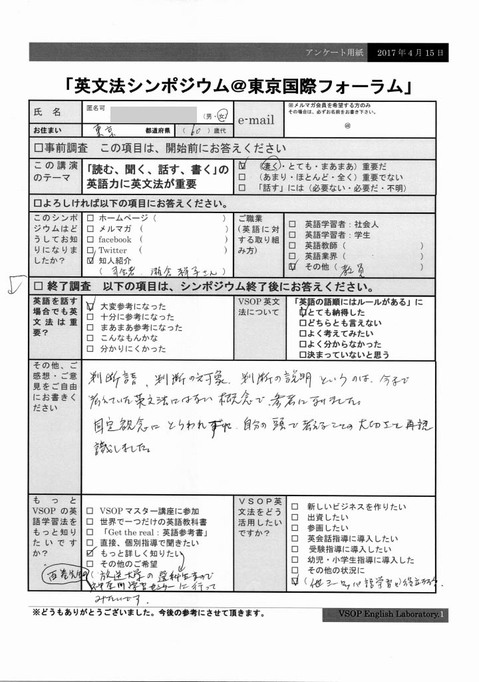 アンケート用紙 2017年4月15日
「英文法シンポジウム@東京国際フォーラム」
氏名 匿名可 (男・女) e-mail ※メルマガ会員を希望する方のみ
その場合は、必ずお名前をお書き下さい。
@
お住まい 東京 都道府県 (60)歳代
□事前調査 この項目は、開始前にお答えください
この講演のテーマ 「読む、聞く、話す、書く」の英語力に英文法が重要
☑ (凄く・とても・まあまあ)重要だ
□ (あまり・ほとんど・全く)重要でない
□ 「話す」には(必要ない・必要だ・不明)
□よろしければ以下の項目にお答えください。
このシンポジウムはどうしてお知りになりましたか?
□ ホームページ( )
□ メルマガ ( )
□ facebook ( )
□ Twitter ( )
☑ 知人紹介
ご職業(英語に対する取り組み方)
□ 英語学習者:社会人
□ 英語学習者:学生
□ 英語教師( )
□ 英語業界( )
☑ その他(教員)
□ 終了調査 以下の項目は、シンポジウム終了後にお答えください。
英語を話す場合でも英文法は重要?
☑ 大変参考になった
□ 十分に参考になった
□ まあまあ参考になった
□ こんなもんかな
□ 分かりにくかった
VSOP英文法について
「英語の語順にはルールがある」に
☑とても納得した
□どちらとも言えない
□よく考えてみたい
□よく分からなかった
□決まっていないと思う
その他、ご感想・ご意見をご自由にお書きください
判断語、判断の対象、判断の説明というのは、今まで
考えていた英文法にはない概念で、参考になりました。
固定観念にとらわれずに、自分の頭で考えることの大切さを再認
識しました。
もっとVSOPの英語学習法をもっと知りたいですか?
□ VSOPマスター講座に参加
□ 世界で一つだけの英語教科書
□ 「Get the real:英語参考書」
□ 直接、個別指導で聞きたい
☑ もっと詳しく知りたい
□ その他のご希望
(放送大学の
学習センターに行って
みたいです。
VSOP英文法をどう活用したいですか?
□ 新しいビジネスを作りたい
□ 出資したい
□ 参画したい
□ 英会話指導に導入したい
□ 受験指導に導入したい
□ 幼児・小学生指導に導入した
□ その他の状況に
※どうもありがとうございました。今後の参考にさせて頂きます。
VSOP English Laboratory.1